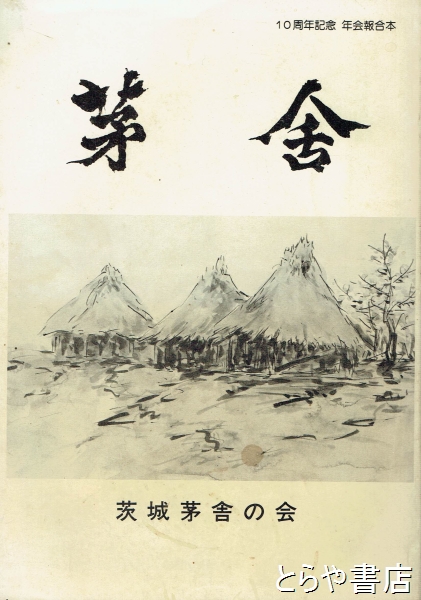 10周年記念 年会報合本
茅舎
茨城茅舎の会
とらや書店